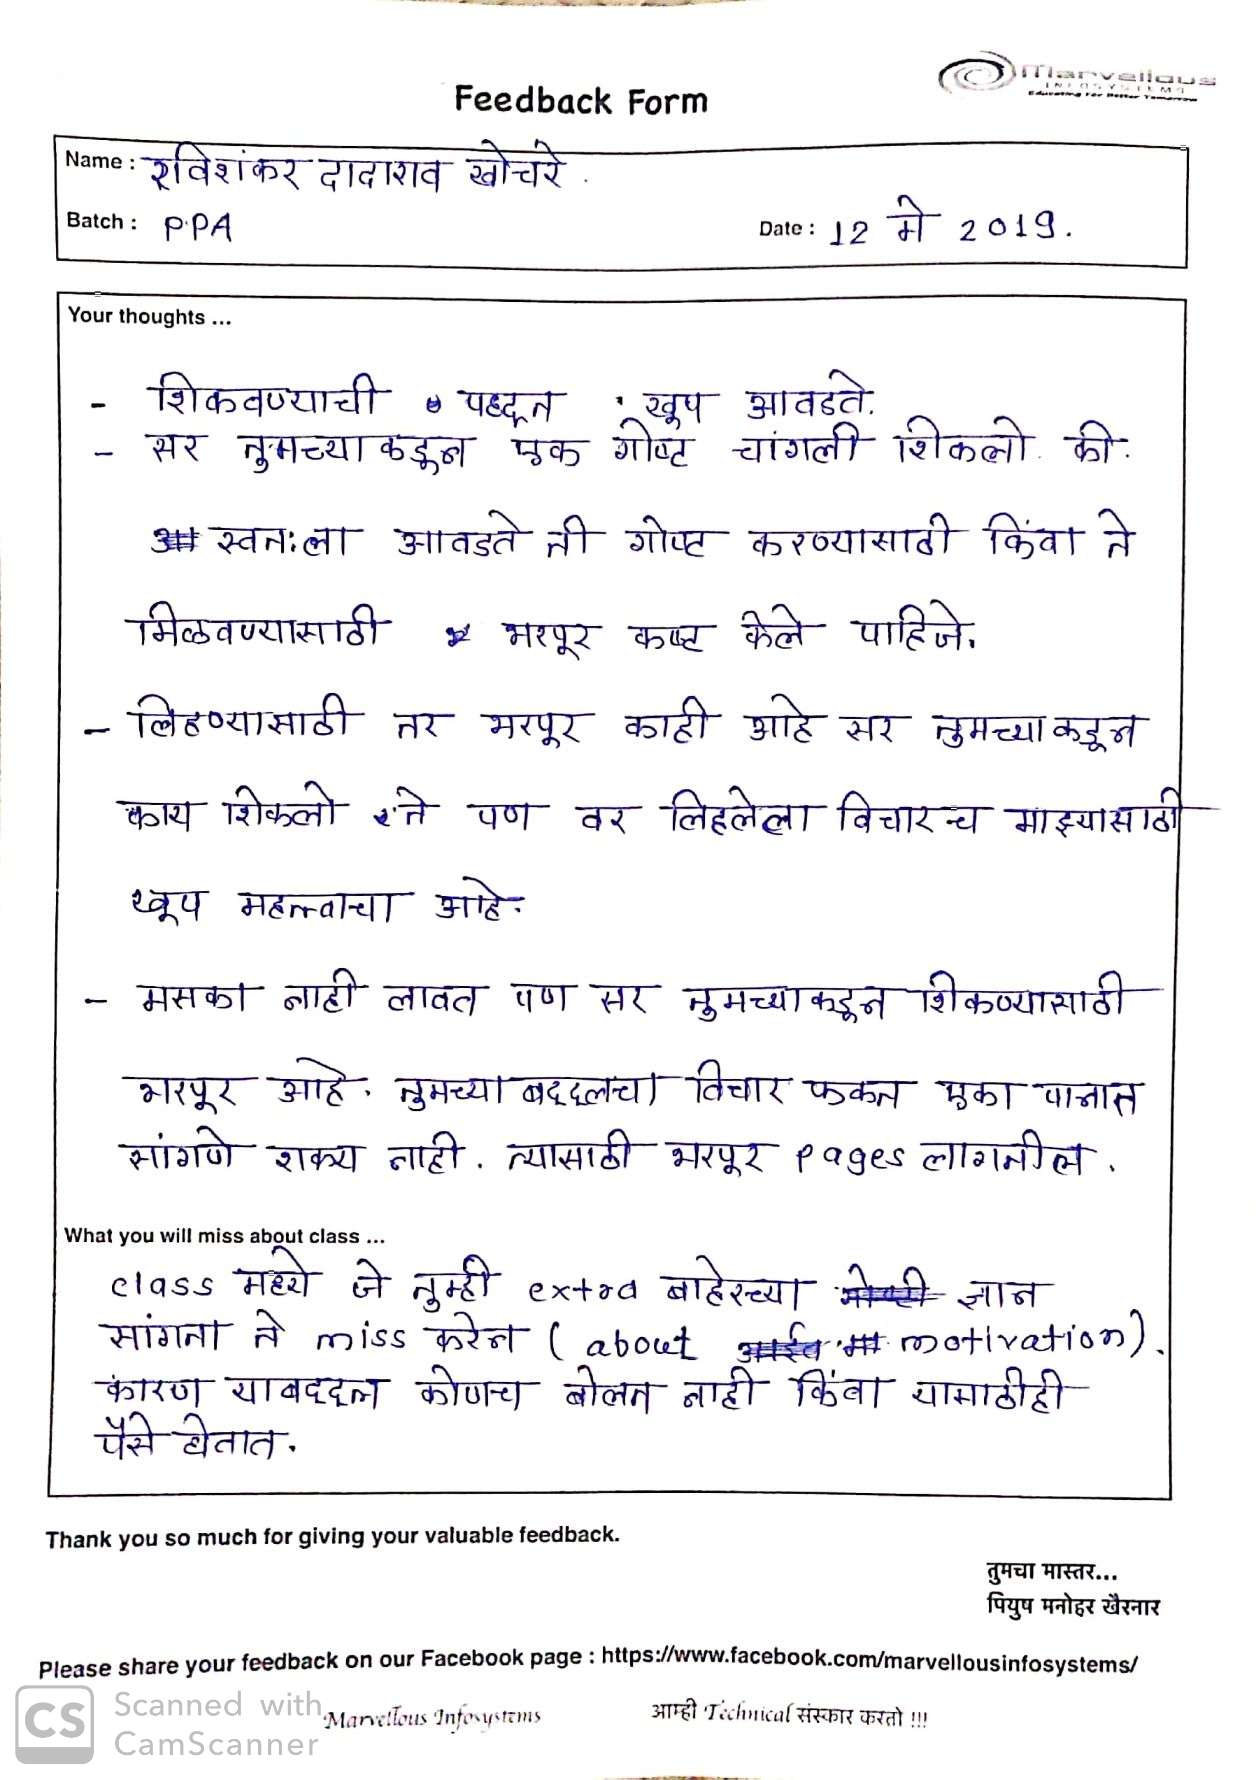 Marvellous
INFOSYSTEMS
Educating For Better Tomorrow
Feedback Form
Name : रविशंकर दादाराव खोचरे.
Batch : PPA
Date : 12 मे 2019.
Your thoughts ...
- शिकवण्याची पद्धत खूप आवडते.
- सर तुमच्याकडून एक गोष्ट चांगली शिकलो. की.
स्वतःला आवडते ती गोष्ट करण्यासाठी किंवा ते
मिळवण्यासाठी भरपूर कष्ट केले पाहिजे.
- लिहण्यासाठी तर भरपूर काही आहे सर तुमच्याकडून
काय शिकलो ते पण वर लिहलेला विचारच माझ्यासाठी
खूप महत्त्वाचा आहे.
- मसका नाही लावत पण सर तुमच्याकडून शिकण्यासाठी
भरपूर आहे. तुमच्याबद्दलचा विचार फकत एका पानात
सांगणे शक्य नाही. त्यासाठी भरपूर pages लागतील.
What you will miss about class ...
class मध्ये जे तुम्ही extra बाहेरच्या ज्ञान
सांगता ते miss करेन (about motivation).
कारण याबद्दल कोणच बोलत नाही किंवा यासाठीही
पैसे घेतात.
Thank you so much for giving your valuable feedback.
तुमचा मास्तर...
पियुष मनोहर खैरनार
Please share your feedback on our Facebook page : https://www.facebook.com/marvellousinfosystems/
CS Scanned with CamScanner
Marvellous Infosystems
आम्ही Technical संस्कार करतो !!!